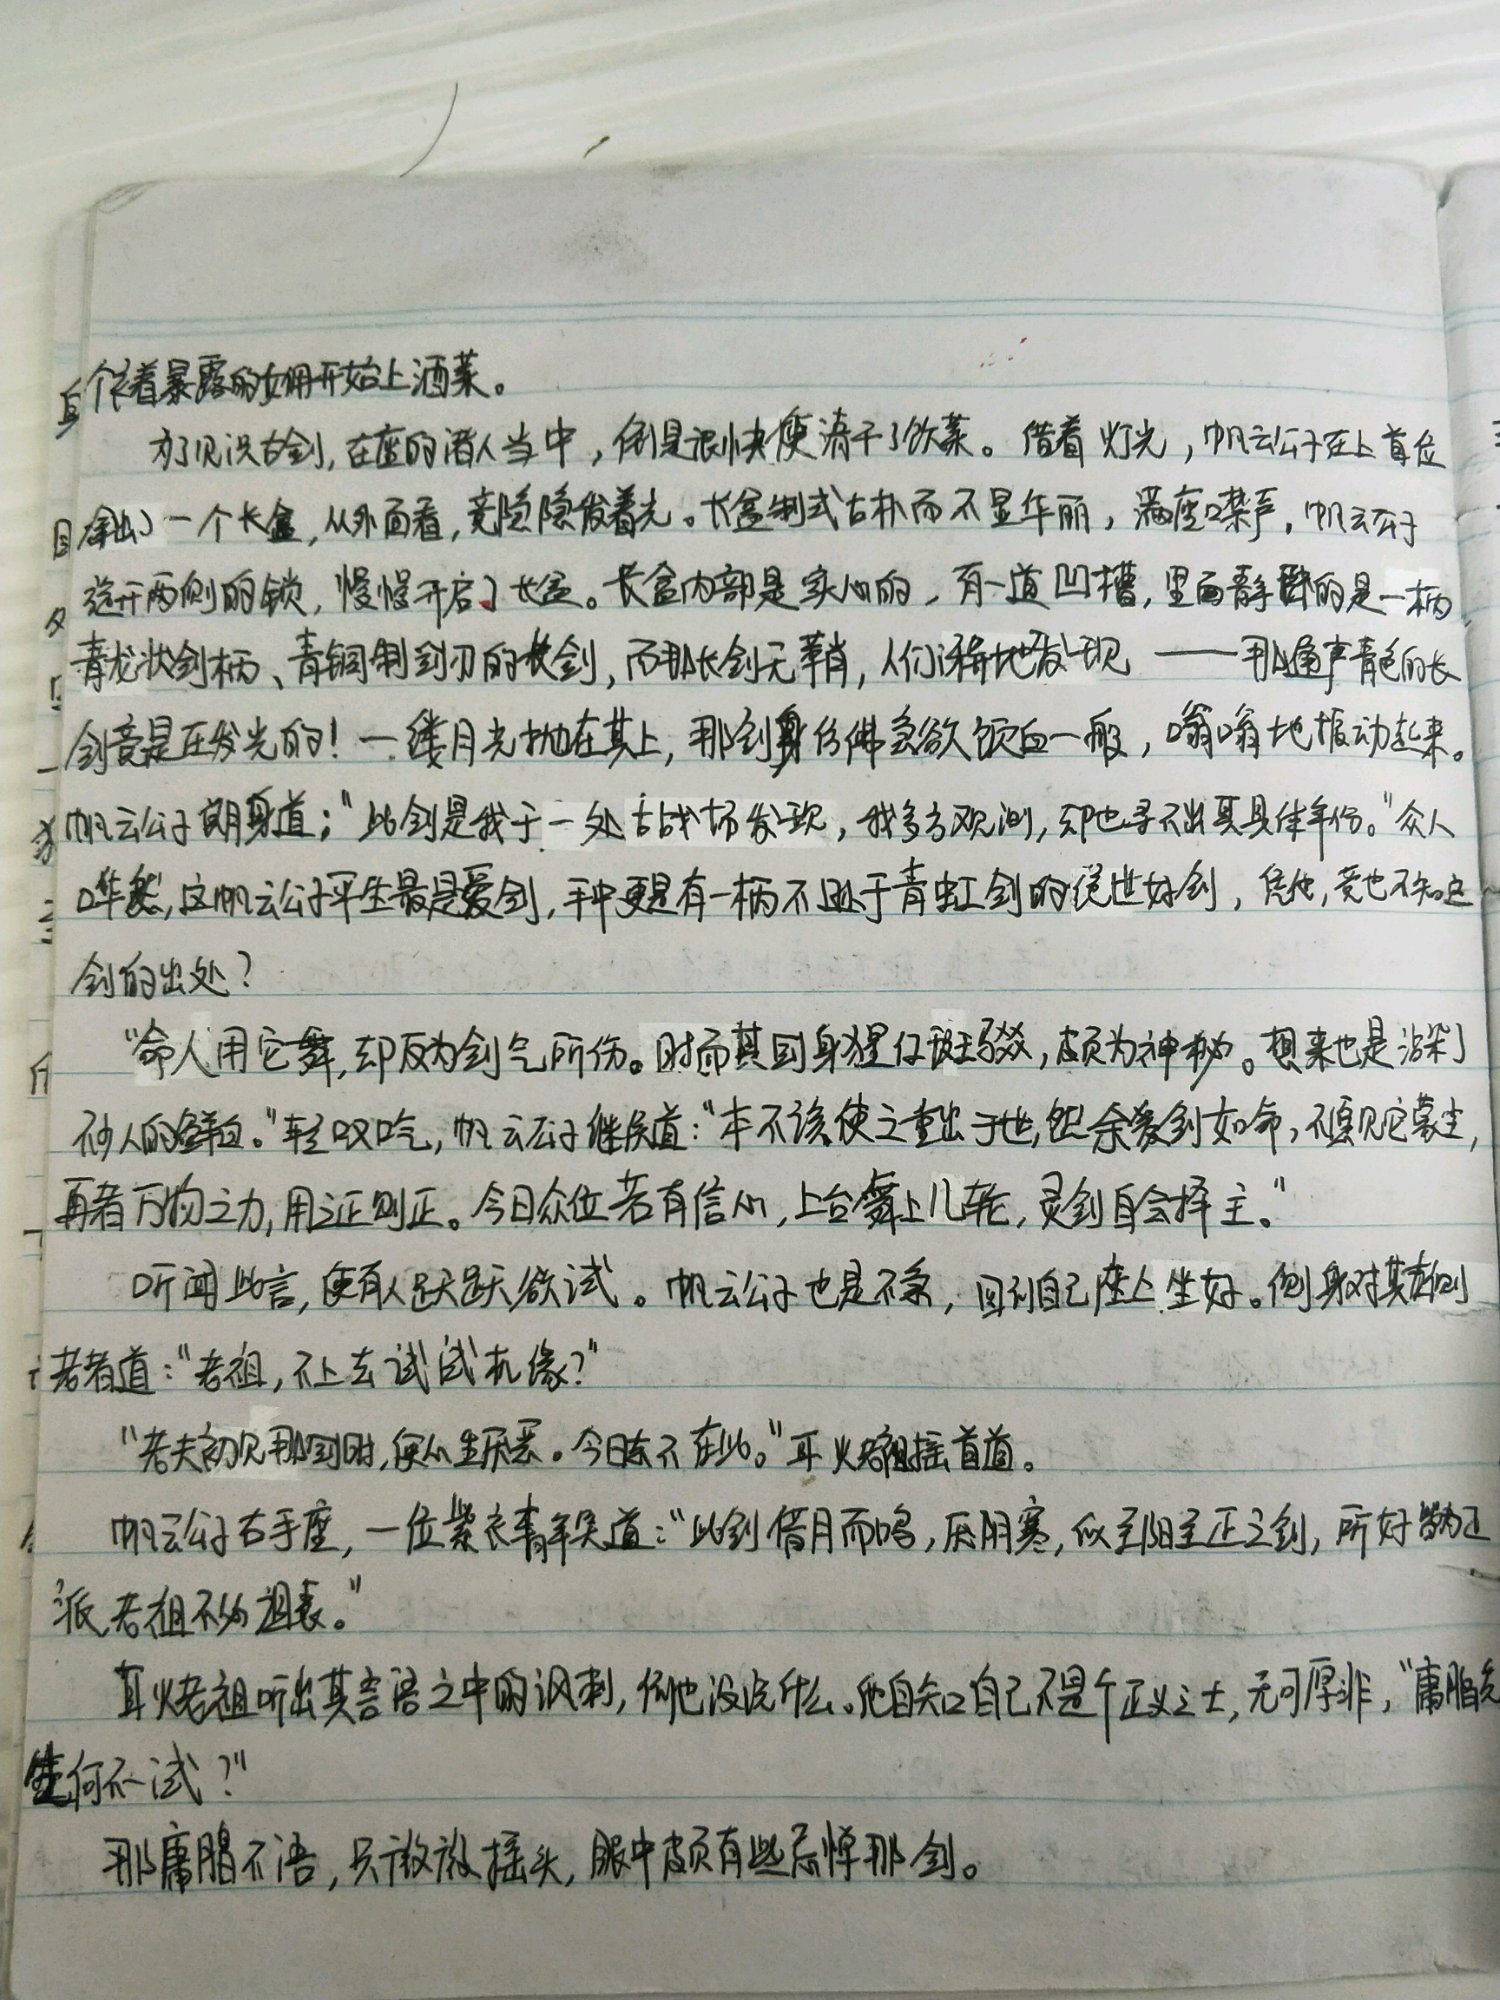 个衣着暴露的女佣开始上酒菜。
为了见识古剑，在座的诸人当中，倒是很快便清干了饮菜。借着灯光，帆云公子在上首位
拿出了一个长盒，从外面看，竟隐隐发着光。长盒制式古朴而不显华丽，满座噤声，帆云公子
旋开两侧的锁，慢慢开启了长盒。长盒内部是实心的，有一道凹槽，里面静卧的是一柄
青龙状剑柄、青铜制剑刃的长剑，而那长剑无鞘，人们讶异地发现——那通声青色的长
剑竟是在发光的！一缕月光抛在其上，那剑身仿佛急欲饮血一般，嗡嗡地振动起来。
帆云公子朗身道；“此剑是我于一处古战场发现，我多方观测，却也寻不出其具体年份。”众人
哗然，这帆云公子平生最是爱剑，手中更是有一柄不逊于青虹剑的绝世好剑，凭他，竟也不知这
剑的出处？
“命人用它舞，却反为剑气所伤。时而其剑身猩红斑驳，颇为神秘。想来也是沾染了
不少人的鲜血。”轻叹口气，帆云公子继续道：“本不该使之重出于世，然余爱剑如命，不愿见它蒙尘，
再者万物之力，用之正则正。今日众位若有信心，上台舞上几轮，灵剑自会择主。”
听闻此言，便有人跃跃欲试。帆云公子也是不急，回到自己座上坐好。侧身对其左侧
老者道：“老祖，不上去试试机缘？”
“老夫初见那剑时，便心生厌恶。今日志不在此。”耳火老祖摇首道。
帆云公子右手座，一位紫衣青年笑道：“此剑借月而鸣，厌阴寒，似至阳至正之剑，所好皆为正
派，老祖不必沮丧。”
耳火老祖听出其言语之中的讽刺，倒也没说什么。他自知自己不是个正义之士，无可厚非，“庸腊先
生何不一试？”
那庸腊不语，只微微摇头，眼中颇有些忌惮那剑。